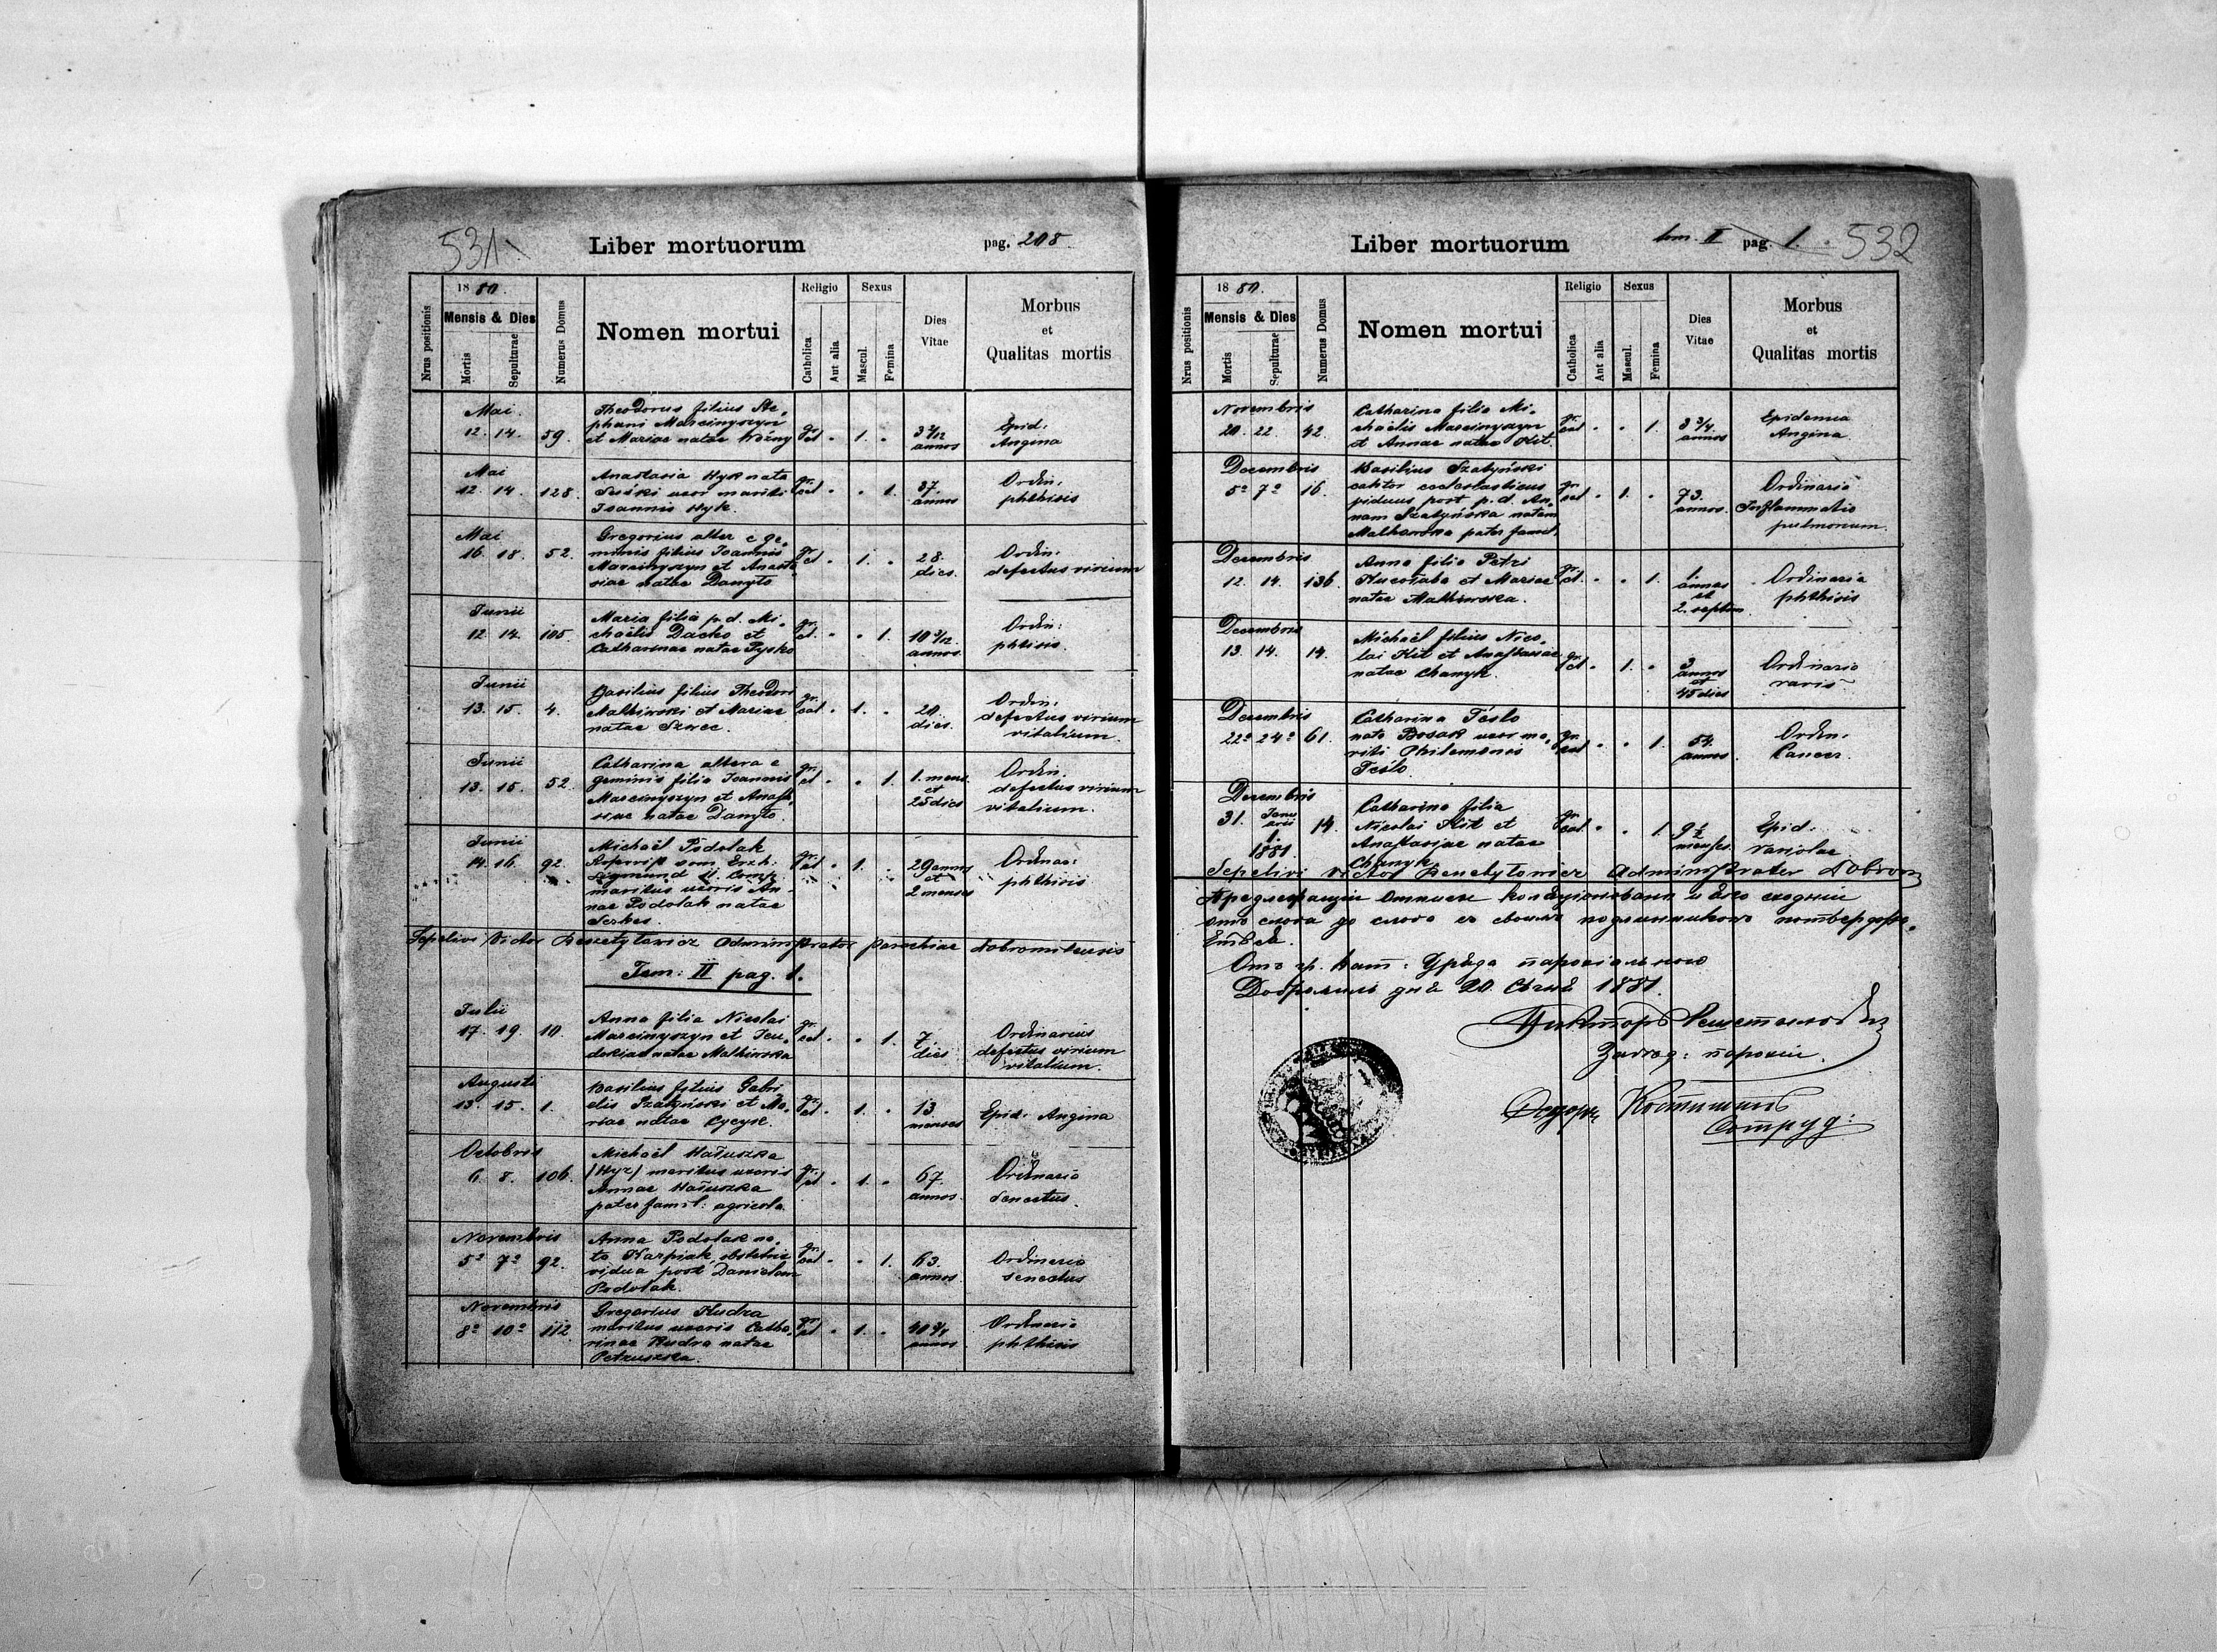 531
Liber mortuorum
pag. 208
Nrus positionis
1880.
Mensis & Dies
Mortis
Sepulturae
Numerus Domus
Nomen mortui
Religio
Catholica
Aut alia
Sexus
Mascul.
Femina
Dies
Vitae
Morbus
et
Qualitas mortis
Mai.
12. 14. 59.
Theodorus filius Ste-
phani Marcinyszyn
et Mariae natae Woźny
gr. cat. 1.
3 2/12
annos
Epid:
Angina
Mai
12. 14. 128.
Anastasia Hyk nata
uxor mariti
Joannis Hyk.
gr. cat. 1.
37.
annos
Ordin:
phthisis
Mai
16. 18. 52.
Gregorius alter e ge-
minis filius Joannis
Marcinyszyn et Anasta-
siae natae Danyło
gr. cat. 1.
28.
dies.
Ordin:
defectus virium
Junii
12. 14. 105.
Maria filia p. d. Mi-
chaëlis Dacko et
Catharinae natae Pysko
gr. cat. 1.
10 9/12
annos.
Ordin:
phtisis.
Junii
13. 15. 4.
Basilius filius Theodori
Malhiwski et Mariae
natae Szwec.
gr. cat. 1.
20.
dies.
Ordin:
defectus virium
vitalium.
Junii
13. 15. 52.
Catharina altera e
geminis filia Joannis
Marcinyszyn et Anasta-
siae natae Danyło.
gr. cat. 1.
1. mens.
et
25 dies
Ordin.
defectus virium
vitalium.
Junii
14. 16. 92.
Michaël Podolak
vom Erzh:
Sigmund 11. Comp.
maritus uxoris An-
nae Podolak natae
gr. cat. 1.
29 annos
et
2 menses
Ordinar:
phthisis
Sepelivi Victor Reszetyłowicz Administrator parochiae dobromilensis
Tom: II pag. 1.
Julii
17. 19. 10.
Anna filia Nicolai
Marcinyszyn et Eu-
dokiae natae Malhiwska
gr. cat. 1.
7.
dies
Ordinarius
defectus virium
vitalium.
Augusti
13. 15. 1.
Basilius filius Gabri-
elis Szatyński et Ma-
riae natae Cycyk.
gr. cat. 1.
13.
menses
Epid: Angina
Octobris
6. 8. 106.
Michaël Hałuszka
(Hyz) maritus uxoris
Annae Hałuszka
pater famil: agricola.
gr. cat. 1.
67.
annos.
Ordinaria
Senectus.
Novembris
5a 7a 92.
Anna Podolak na-
ta Karpiak, obstetrix
vidua post Danielem
Podolak.
gr. cat. 1.
63.
annos.
Ordinaria
senectus
Novembris
8a 10a 112
Gregorius Kudra
maritus uxoris Catha-
rinae Kudra natae
Petruszka.
gr. cat. 1.
40 3/4
annos
Ordinaria
phthisis
Liber mortuorum
tom. II pag. 1.
532
Nrus positionis
1880.
Mensis & Dies
Mortis
Sepulturae
Numerus Domus
Nomen mortui
Religio
Catholica
Aut alia
Sexus
Mascul.
Femina
Dies
Vitae
Morbus
et
Qualitas mortis
Novembris
20. 22. 42.
Catharina filia Mi-
chaëlis Marcinyszyn
et Annae natae Kit.
gr. cat. 1.
3 3/4
annos
Epidemia
Angina.
Decembris
5a 7a 16.
Basilius Szatyński
cantor ecclesiasticus
viduus post p. d. An-
nam Szatyńska natam
Malhowska pater famil.
gr. cat. 1.
73.
annos.
Ordinaria
Inflammatio
pulmonum.
Decembris
12. 14. 136.
Anna filia Petri
et Mariae
natae Malhiwska.
gr. cat. 1.
1.
annos
et
2. septim.
Ordinaria
phthisis
Decembris
13. 14. 14.
Michaël filius Nico-
lai Kit et Anastasiae
natae Chanyk.
gr. cat. 1.
3
annos
et
45 dies
Ordinaria
Decembris
22a 24a 61.
Catharina Teslo
nata Bosak uxor ma-
riti Philemonis
Teslo.
gr. cat. 1.
54.
annos.
Ordin:
Cancer.
Decembris
31. Janu
arii
1.
1881. 14.
Catharina filia
Nicolai Kit et
Anastasiae natae
Chanyk.
gr. cat. 1.
9 1/2
menses.
Epid:
Variolae
Sepelivi Victor Reszetyłowicz Administrator Dobrom
сходній
отъ слова до слова съ своимъ подлинникомъ потверджа-
Отъ гр. кат: Уряда парохіального
Добромиль дня 20. 1881.
Викторъ Решетиловичъ
Завѣд: парохіи.
Сотруд: